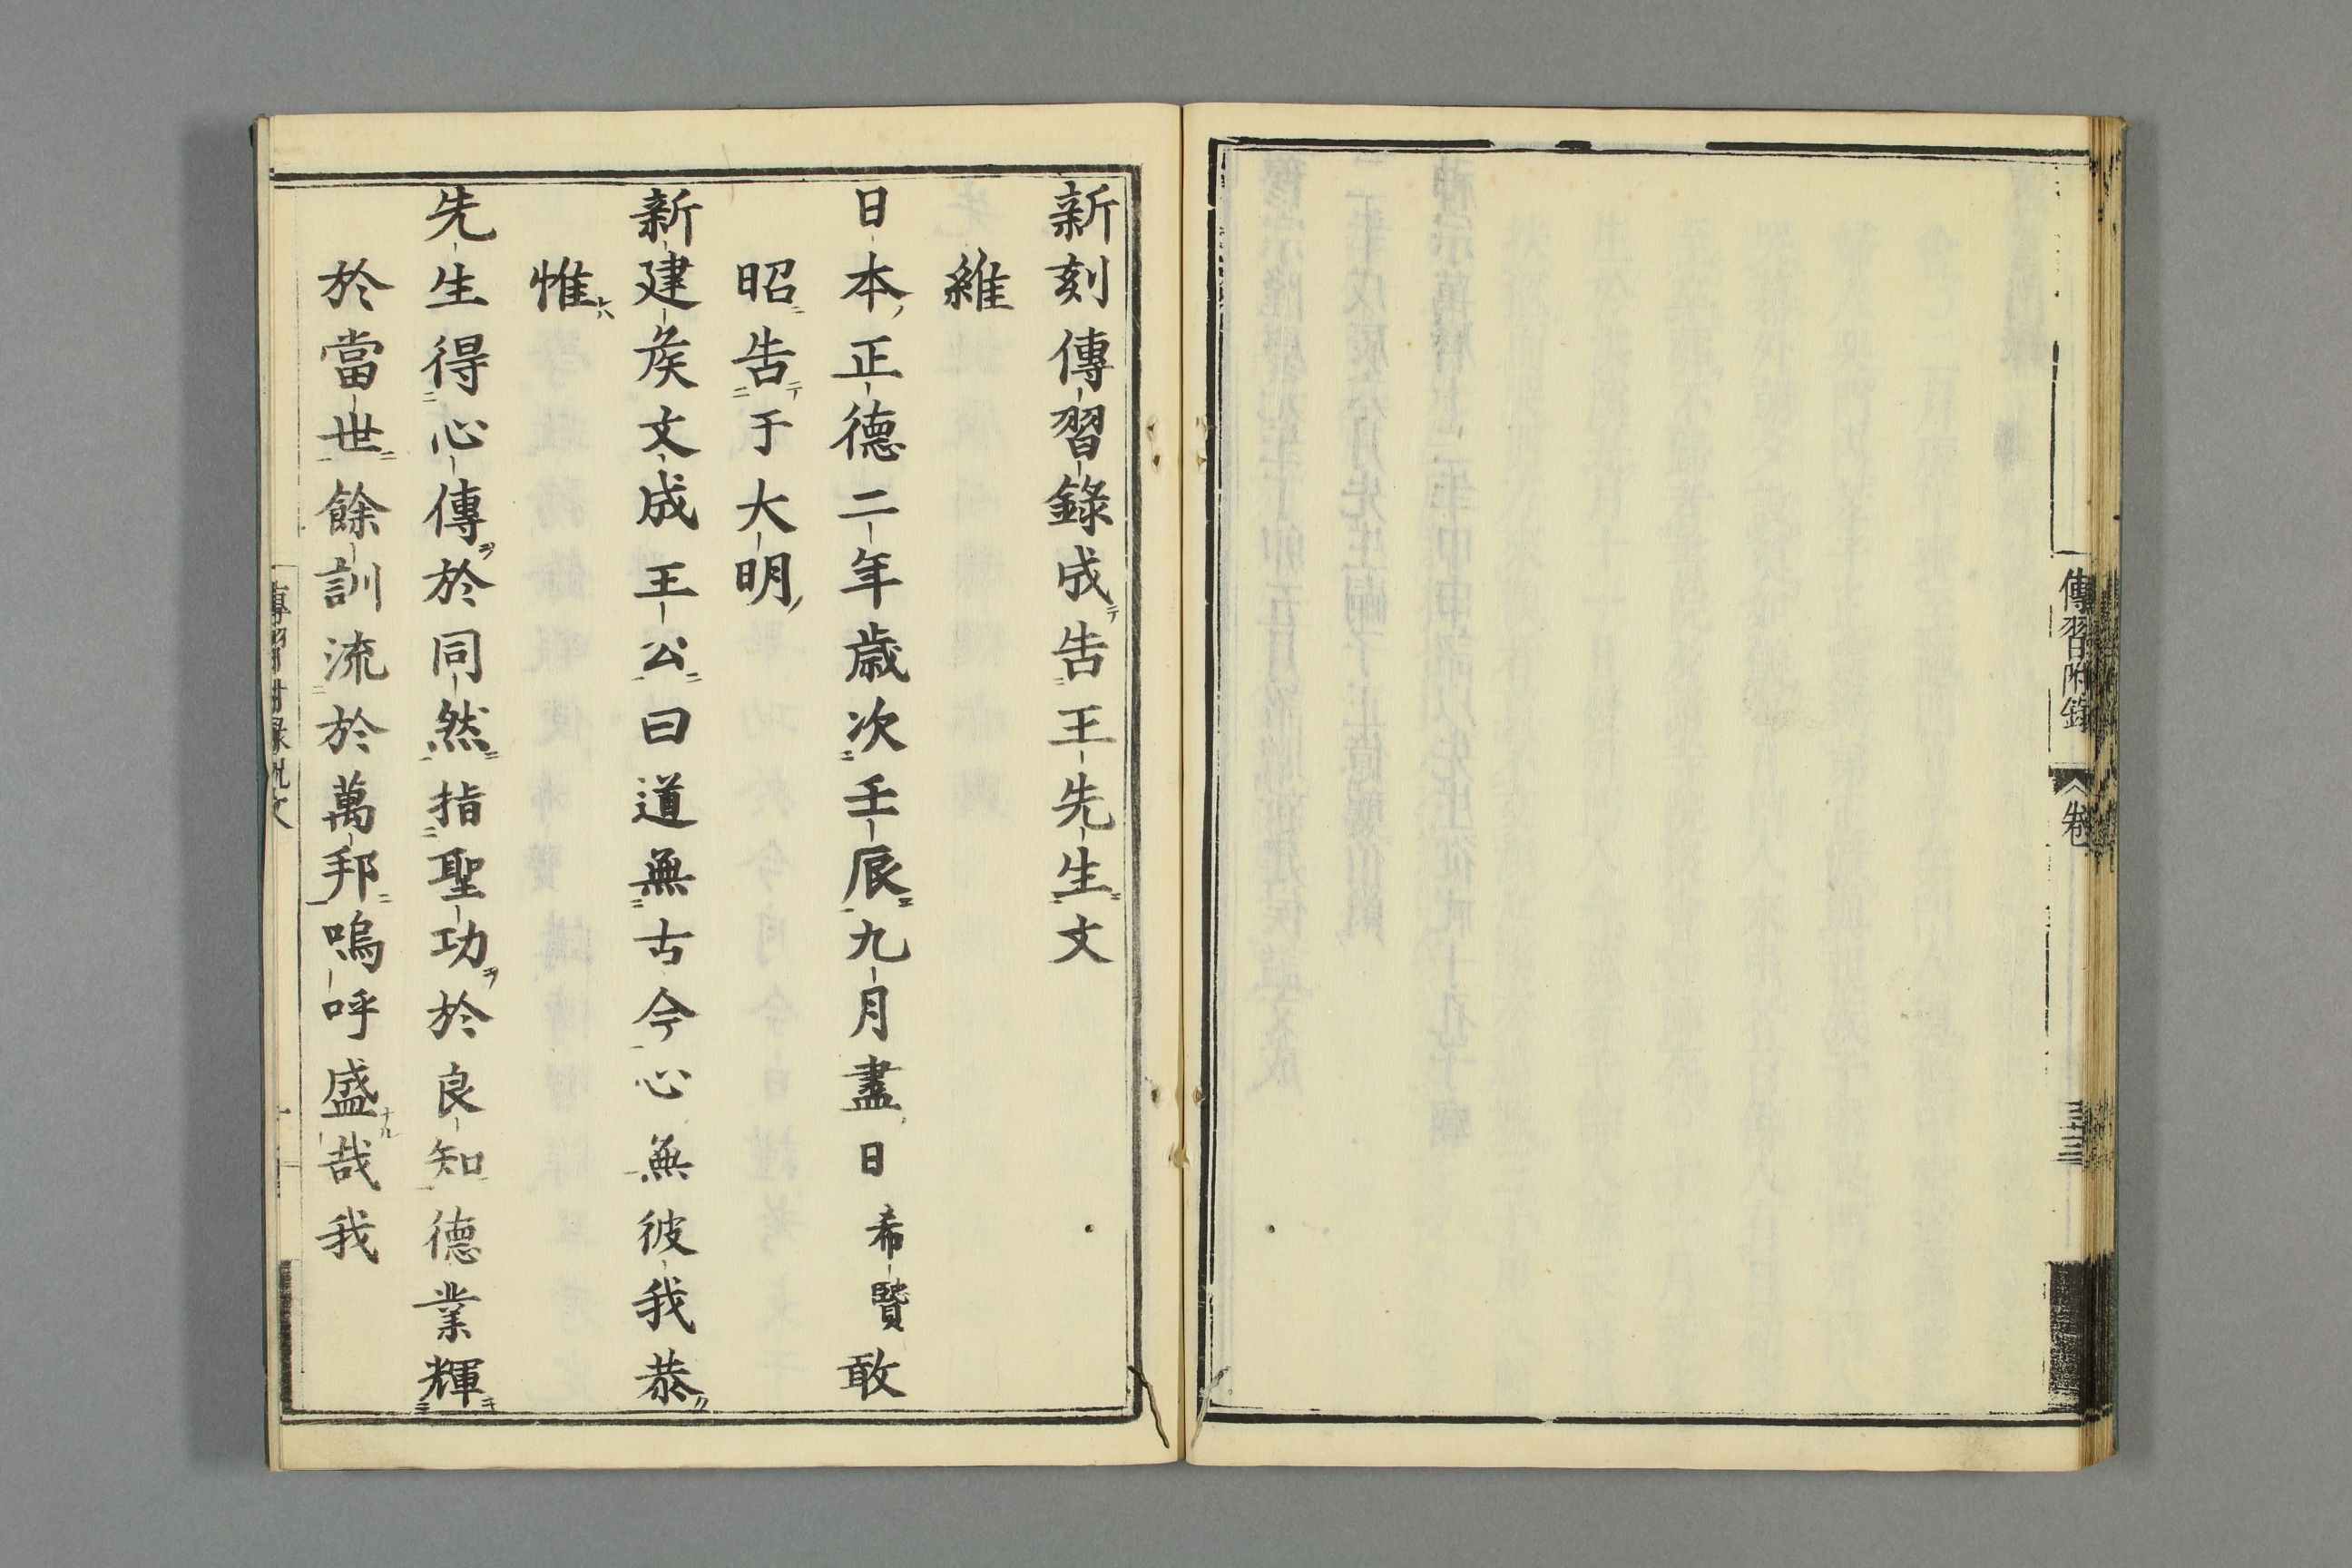 傳習附錄
卷
三十三
新刻傳習錄成告王先生文
維
日本正德二年歲次壬辰九月盡日希賢敢
昭告于大明
新建矦文成王公曰道無古今心無彼我恭
惟
先生得心傳於同然指聖功於良知德業輝
於當世餘訓流於萬邦嗚呼盛哉我